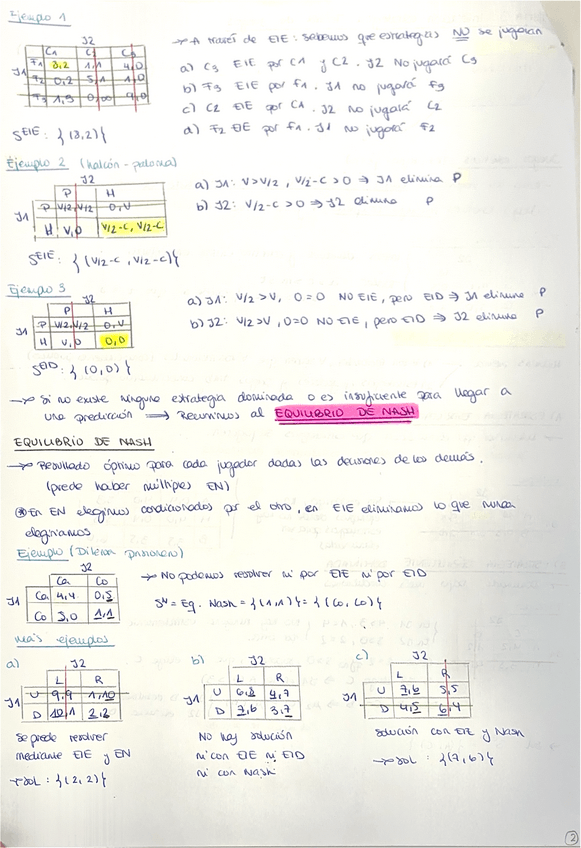 Ejemplo 1
J2
C1 C2 C3
J1 F1 3,2 1,1 4,0
F2 0,2 5,1 1,0
F3 1,3 0,00 9,0
SEIE: {(3,2)}
→ A través de EIE: sabemos que estrategias NO se jugarán
a) C3 EIE por C1 y C2. J2 No jugará C3
b) F3 EIE por F1. J1 no jugará F3
c) C2 EIE por C1. J2 no jugará C2
d) F2 EIE por F1. J1 no jugará F2
Ejemplo 2 (halcón-paloma)
J2
P H
J1 P V/2,V/2 0,V
H V,0 V/2-C, V/2-C
SEIE: {(V/2-C, V/2-C)}
a) J1: V>V/2, V/2-C>0 ⇒ J1 elimina P
b) J2: V/2-C>0 ⇒ J2 elimina P
Ejemplo 3
J2
P H
J1 P V/2,V/2 0,V
H V,0 0,0
SEID: {(0,0)}
a) J1: V/2>V, 0=0 NO EIE, pero EID ⇒ J1 elimina P
b) J2: V/2>V, 0=0 NO EIE, pero EID ⇒ J2 elimina P
→ Si no existe ninguna estrategia dominada o es insuficiente para llegar a
una predicción ⇒ Recurrimos al EQUILIBRIO DE NASH
EQUILIBRIO DE NASH
→ Resultado óptimo para cada jugador dadas las decisiones de los demás.
(puede haber múltiples EN)
⊛ En EN elegimos condicionados por el otro, en EIE eliminamos lo que nunca
elegiríamos
Ejemplo (Dilema prisionero)
J2
Ca Co
J1 Ca 4,4 0,5
Co 5,0 1,1
→ No podemos resolver ni por EIE ni por EID
SN = Eq. Nash = {(1,1)} = {(Co, Co)}
más ejemplos
a) J2
L R
J1 U 9,9 1,10
D 10,1 2,2
Se puede resolver
mediante EIE y EN
→ sol: {(2,2)}
b) J2
L R
J1 U 6,8 4,7
D 7,6 3,7
No hay solución
ni con EIE ni EID
ni con Nash
c) J2
L R
J1 U 7,6 5,5
D 4,5 6,4
Solución con EIE y Nash
→ sol: {(7,6)}
2